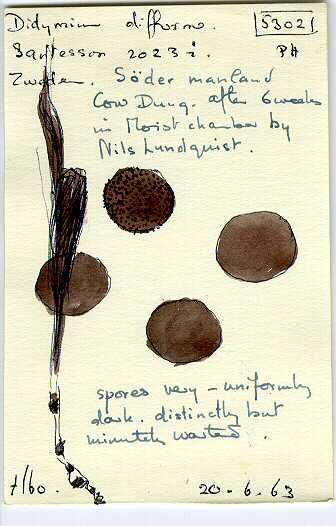 Didymium difforme. 53021
Santesson 2023 i. PA
Zweden. Södermanland
Cow Dung. after 6 weeks
in Moist chamber by
Nils Lundquist.
spores very - uniformly
dark. distinctly but
minutely warted.
20-6.63